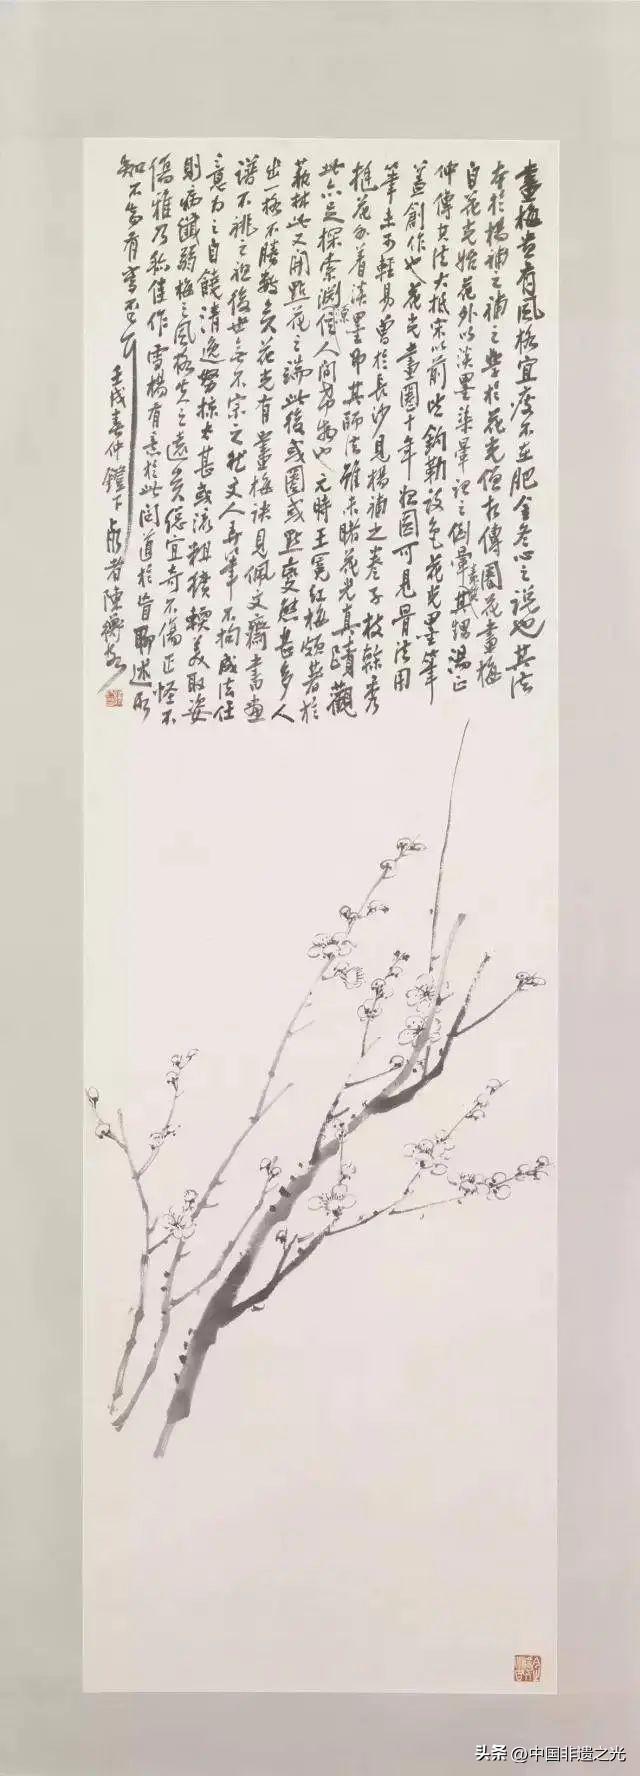 畫梅貴有風格宜瘦不在肥金冬心之說也其法
本於楊補之補之學於花光僧傳圈花畫梅
自花光始花外以淡墨染暈謂之倒暈其甥湯正
仲傳其法大抵宋以前皆鉤勒設色花光墨筆
蓋創作也花光畫圈十年圈可見骨法用
筆未可輕易曾於長沙見楊補之卷子枝幹秀
挺花外着淡墨即其師法雖未睹花光真蹟觀
此亦足探索淵源信人間希物也元時王冕紅梅著於
藝林此又開點花之端此後或圈或點變態甚多人
出一格不勝數矣花光有畫梅訣見佩文齋書畫
譜不祧之祖後世無不宗之然文人弄筆不拘成法任
意為之自饒清逸努掠太甚或流粗獷軟美取姿
則病纖弱梅之風格失之遠矣總宜奇不傷正怪不
傷雅乃稱佳作雪楊有意於此問道於盲聊述所
知不知有當否
壬戌春仲鐙下者陳
头条 @中国非遗之光